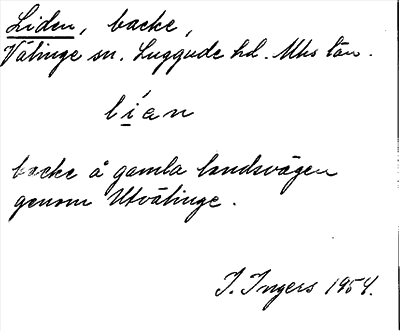 Liden, backe,
Välinge sn. Luggude hd. Mhs län.
lían
backe å gamla landsvägen
genom Utvälinge.
I. Ingers 1954.